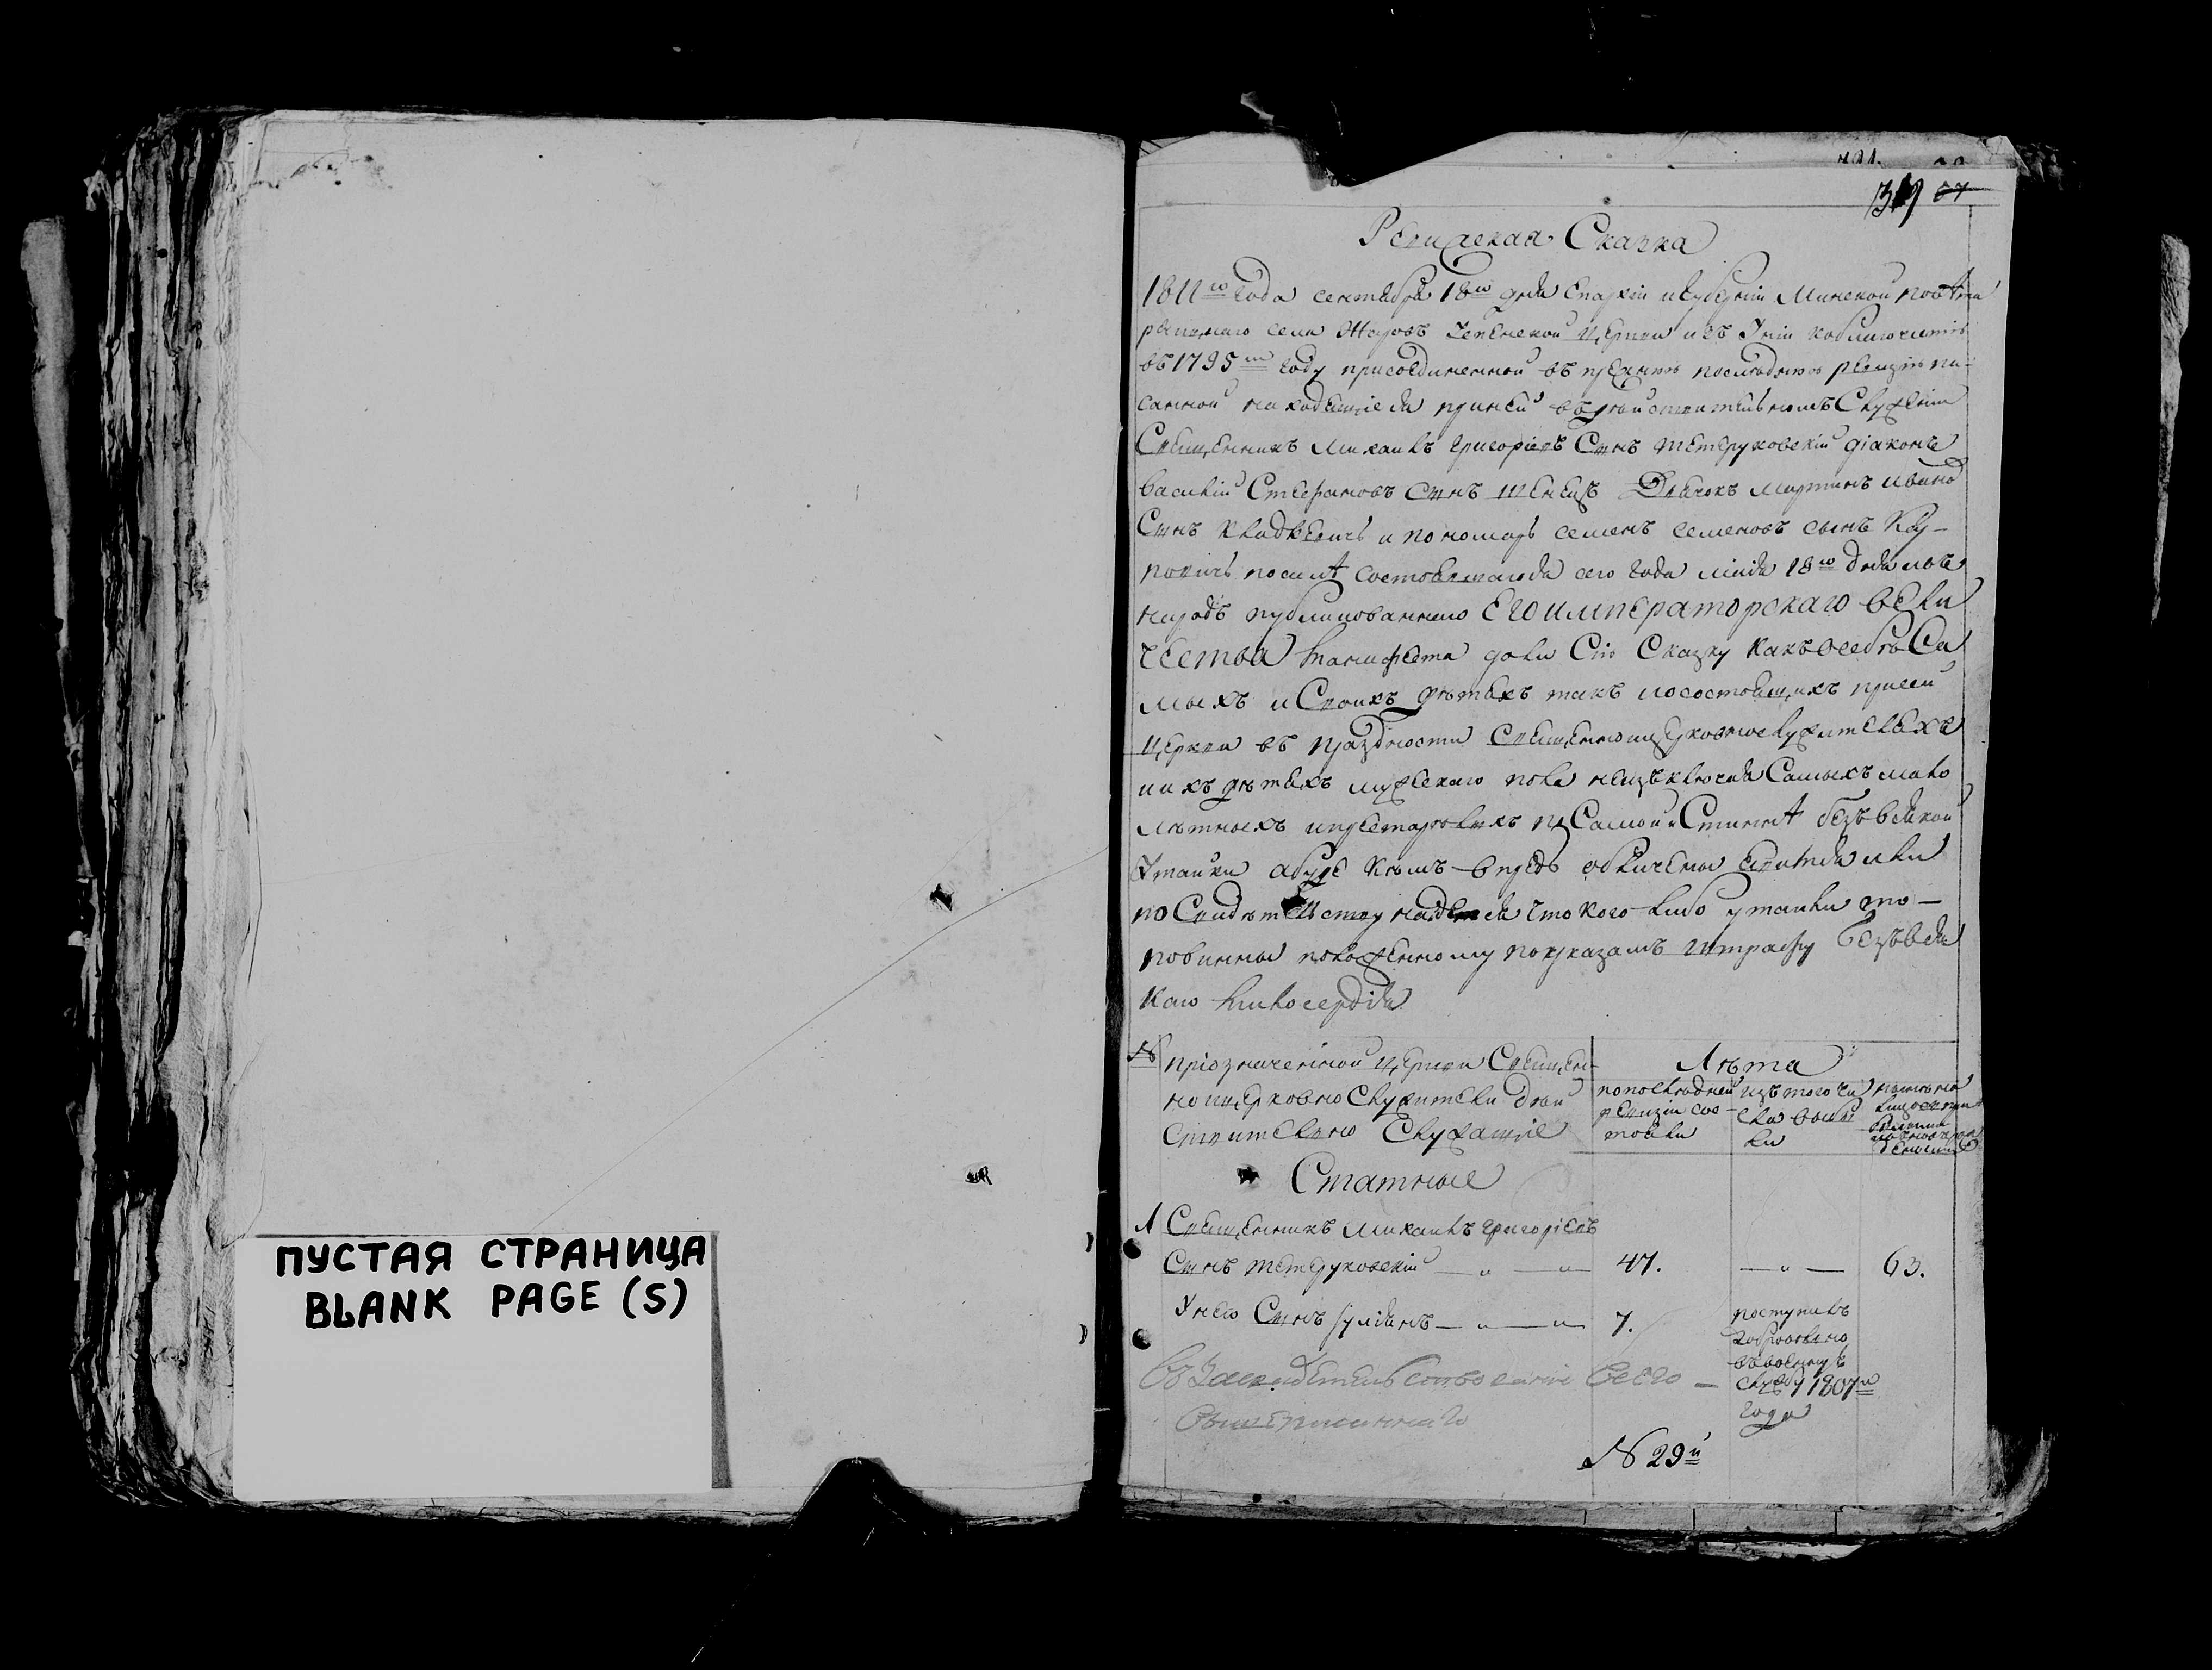 ПУСТАЯ СТРАНИЦА
BLANK PAGE (S)
319 67
Ревизская Сказка
1811го Года сентября 18го дня Епархіи и Губерніи Минской повѣта
села церкви изъ Уніи ко благочестію
въ 1795м году присоединенной въ прежнюю последнюю ревизію пи-
санной находящіеся при ней въ действительномъ Служеніи
Священникъ Михаилъ Григоріевъ Сынъ Тетеруковскій діаконъ
Василій Стефановъ Сынъ Дьячокъ Мартинъ Ивано
Сынъ и пономарь семенъ семеновъ сынъ Кур-
повичъ по силѣ состоявшагося сего Года маія 18го дня и въ
народъ публикованнаго Его императорскаго вели
чества манифеста дали Сію Сказку какъ о себѣ Са
мыхъ и Своихъ дѣтяхъ такъ и о состоящихъ при сей
церкви въ праздности Священноцерковнослужителяхъ
и ихъ дѣтяхъ мужескаго пола не изъключая Самыхъ мало
лѣтныхъ и престарелыхъ по Самой Стиннѣ безъ всякой
Утайки а буде кемъ впредь обличены явятся или
по Свидѣтельству найдется что кого либо утаили то —
повинны положенному по указамъ штрафу безъ вся
каго милосердія
№ При означенной церкви Священ-
ноцерковнослужители дѣй
ствительно Служащіе
Лѣта
по последней ревизіи сос-
тояли
изъ того чи
сла выбы
ли
нынѣ на
лицо
Статные
1 Священникъ Михаилъ Григоріевъ
Сынъ Тетеруковскій — „ — „ — 47. — „ — 63.
У него Сынъ Іуліянъ — „ — „ — 7.
поступилъ
добровольно
въ военную
службу 1807го
Года
всего —
№ 29й